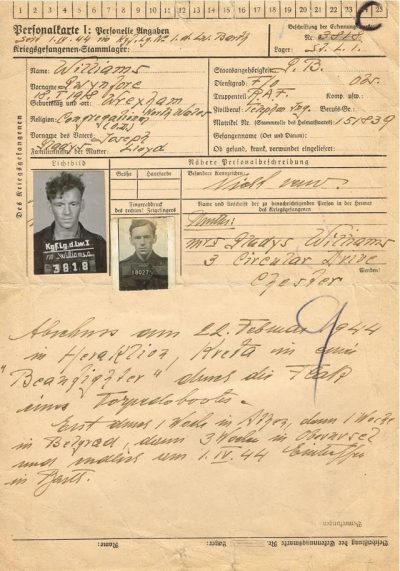 1 2 3 4 5 6 7 8 9 10 11 12 13 14 15 16 17 18 19 20 21 22 23 24 25
C
Personalkarte I: Personelle Angaben
Beschriftung der Erkennungsmarke
Seit 1. IV. 44 im
Nr. 3818
Kriegsgefangenen-Stammlager:
Lager: St. L. 1.
Des Kriegsgefangenen
Name: Williams
Vorname: Gwynfore
Geburtstag und -ort: Wrexham
Religion: Congregational North Wales
Vorname des Vaters: Joseph
Familienname der Mutter: Lloyd
Gladys
Staatsangehörigkeit: G.B.
Dienstgrad: F/O
Truppenteil: R.A.F. Komp. usw.:
Zivilberuf: Berufs-Gr.:
Matrikel Nr. (Stammrolle des Heimatstaates): 151839
Gefangennahme (Ort und Datum):
Ob gesund, krank, verwundet eingeliefert:
Lichtbild
Nähere Personalbeschreibung
Größe
Haarfarbe
Besondere Kennzeichen:
Fingerabdruck
des rechten! Zeigefingers
Name und Anschrift der zu benachrichtigenden Person in der Heimat
des Kriegsgefangenen
Mutter:
Mrs Gladys Williams
3 Circular Drive
Chester
Wenden!
KgF.Lg.d.Lw.I
Williams.G.
3818
18027
Absturz am 22. Februar 1944
in Heraklion, Kreta in einer
"Beaufighter" durch die Flak
eines Torpedobootes.
Erst etwa 1 Woche in Athen, dann 1 Woche
in Belgrad, dann 3 Wochen in Oberursel
und endlich am 1. IV. 44
in Barth.
Bemerkungen:
Beschriftung der Erkennungsmarke Nr.
Lager:
Name: